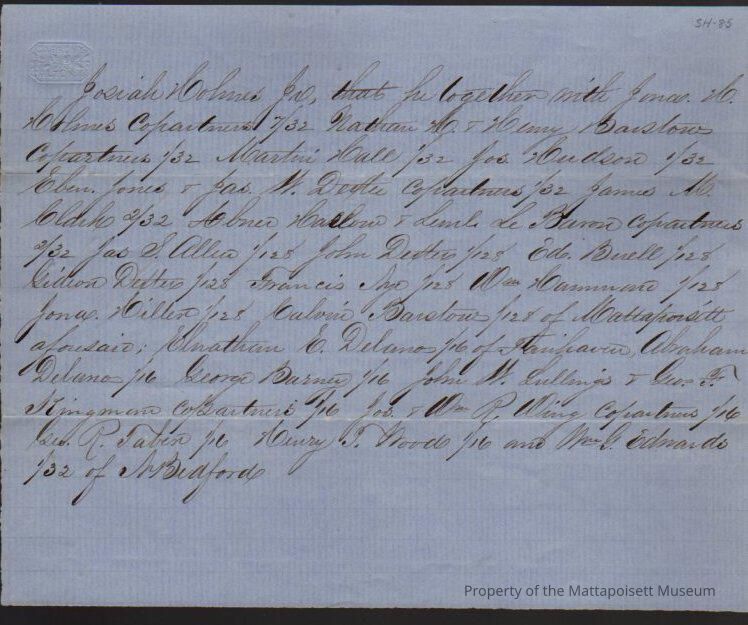 SH-85
Josiah Holmes Jr, that he together with Jona. H.
Holmes Copartners 7/32 Nathan H. & Henry Barstow
Copartners 1/32 Martin Hall 1/32 Jos. Hudson 1/32
Eben. Jones & Jas. W. Dexter Copartners 1/32 James M.
2/32 Abner Harlow & Leml. Le Baron Copartners
2/32 Jas S. Allen 1/128 John Dexter 1/128 Ed. 1/128
Gideon Dexter 1/128 Francis 1/128 Wm Hammond 1/128
Jona. Hiller 1/128 Calvin Barstow 1/128 of Mattapoisett
aforesaid; Elnathan E. Delano 1/16 of Fairhaven, Abraham
Delano 1/16 George Barney 1/16 John W. & Geo. F.
Kingman Copartners 1/16 Jos. & Wm R. Wing Copartners 1/16
Geo. R. Taber 1/16 Henry T. Wood 1/16 and Wm G. Edwards
1/32 of N Bedford
Property of the Mattapoisett Museum